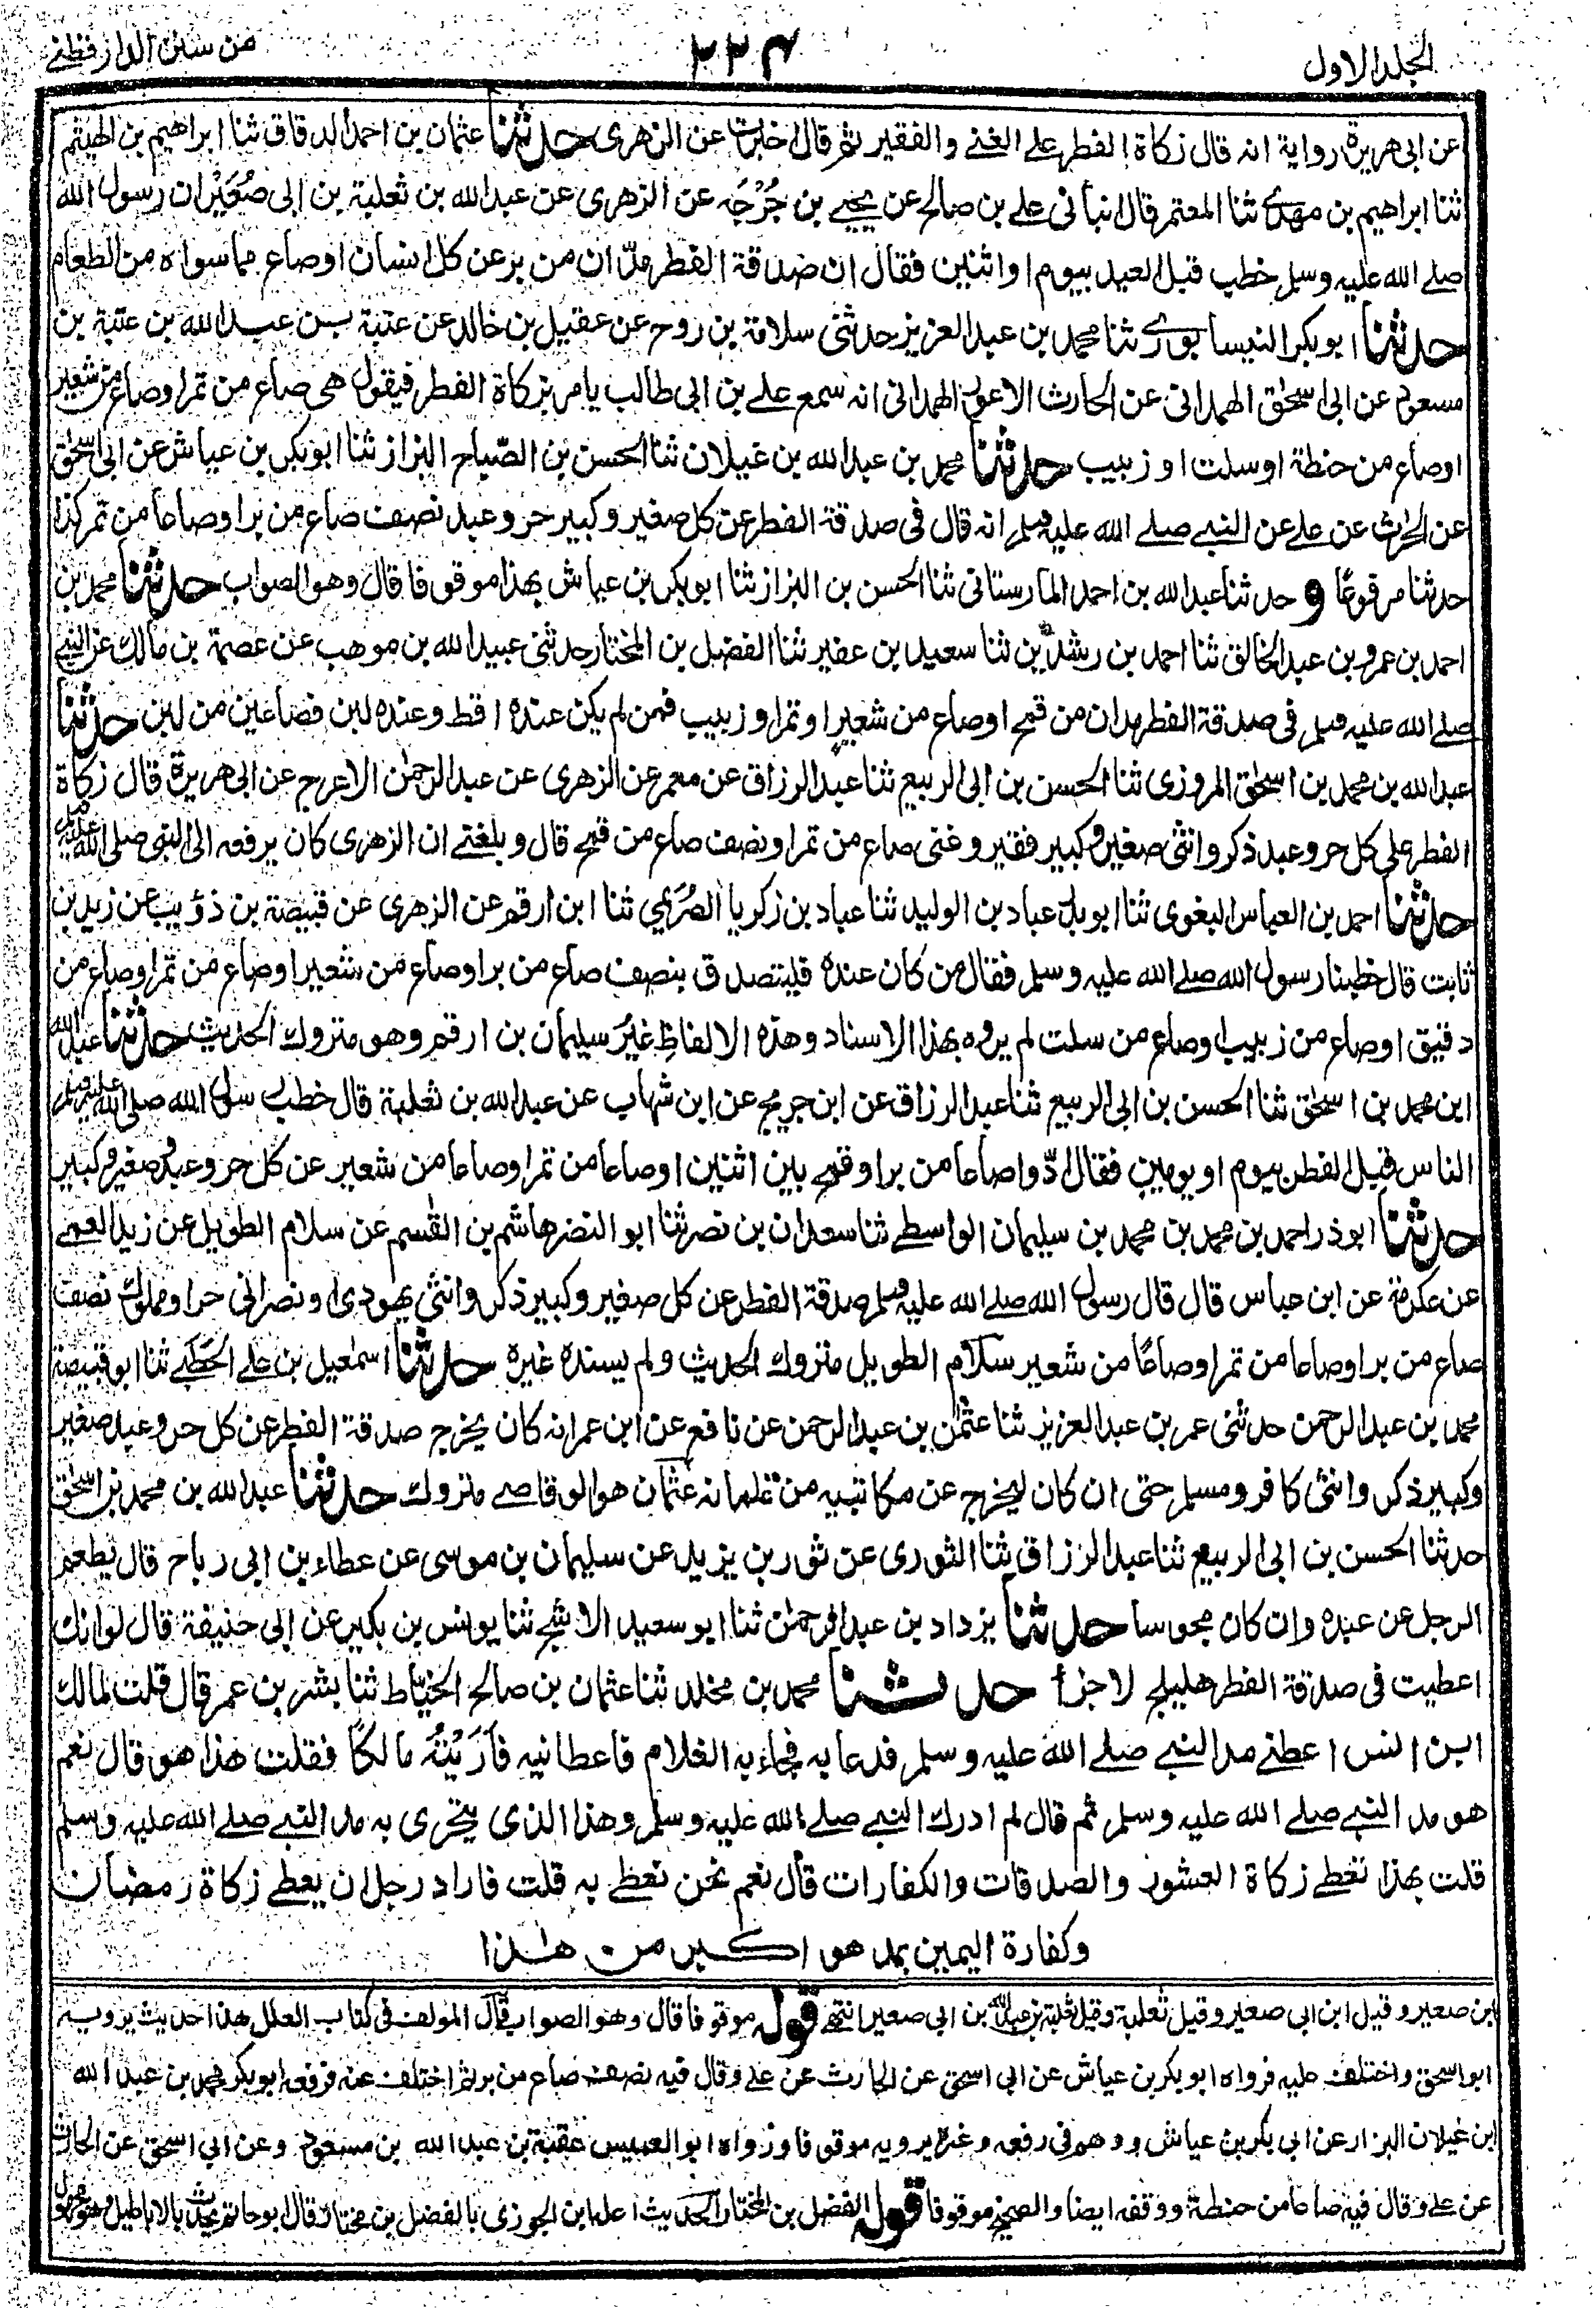 الجلد الاول
٢٢٤
من سنن الدارقطنے
عن ابی هريرة رواية انه قال زكاة الفطر علے الغنے والفقير ثم قال اخبرت عن الزهری حدثنا عثمان بن احمد الدقاق ثنا ابراهيم بن الهيثم
ثنا ابراهيم بن مهدے ثنا المعتمر قال انبأنی علے بن صالح عن يحيے بن جُرْجَه عن الزهری عن عبد الله بن ثعلبة بن ابی صُعَيْر ان رسول الله
صلے الله عليه وسلم خطب قبل العيد بيوم او اثنين فقال ان صدقة الفطر مدّان من بر عن كل انسان او صاع مما سواه من الطعام
حدثنا ابو بكر النيسابورے ثنا محمد بن عبد العزيز حدثنی سلامة بن روح عن عقيل بن خالد عن عتبة بن عبد الله بن عتبة بن
مسعود عن ابی اسحٰق الهمدانی عن الحارث الاعور الهمدانی انه سمع علے بن ابی طالب يامر بزكاة الفطر فيقول هی صاع من تمر او صاع من شعير
او صاع من حنطة او سلت او زبيب حدثنا محمد بن عبد الله بن غيلان ثنا الحسن بن الصّباح البزاز ثنا ابو بكر بن عياش عن ابی اسحٰق
عن الحٰرث عن علے عن النبے صلے الله عليه وسلم انه قال فی صدقة الفطر عن كل صغير وكبير حر وعبد نصف صاع من بر او صاعا من تمر كذا
حدثنا مرفوعًا و حدثنا عبد الله بن احمد المارستانی ثنا الحسن بن البزاز ثنا ابو بكر بن عياش بهذا موقوفا قال وهو الصواب حدثنا محمد بن
احمد بن عمرو بن عبد الخالق ثنا احمد بن رشدين ثنا سعيد بن عفير ثنا الفضل بن المختار حدثنی عبيد الله بن موهب عن عصمة بن مالك عن النبے
صلے الله عليه وسلم فی صدقة الفطر مدان من قمح او صاع من شعير او تمر او زبيب فمن لم يكن عنده اقط وعنده لبن فصاعين من لبن حدثنا
عبد الله بن محمد بن اسحٰق المروزی ثنا الحسن بن ابی الربيع ثنا عبد الرزاق عن معمر عن الزهری عن عبد الرحمٰن الاعرج عن ابی هريرة قال زكاة
الفطر علی كل حر وعبد ذكر وانثی صغير وكبير فقير وغنی صاع من تمر او نصف صاع من قمح قال وبلغنے ان الزهری كان يرفعه الی النبی صلی الله عليه وسلم
حدثنا احمد بن العباس البغوی ثنا ابو بدر عباد بن الوليد ثنا عباد بن زكريا الصُرَيمي ثنا ابن ارقم عن الزهری عن قبيصة بن ذؤيب عن زيد بن
ثابت قال خطبنا رسول الله صلے الله عليه وسلم فقال من كان عنده فليتصدق بنصف صاع من بر او صاع من شعير او صاع من تمر او صاع من
دقيق او صاع من زبيب او صاع من سلت لم يروه بهذا الاسناد وهذه الالفاظ غير سليمان بن ارقم وهو متروك الحديث حدثنا عبد الله
ابن محمد بن اسحٰق ثنا الحسن بن ابی الربيع ثنا عبد الرزاق عن ابن جريج عن ابن شهاب عن عبد الله بن ثعلبة قال خطب رسول الله صلی الله عليه وسلم
الناس قبل الفطر بيوم او يومين فقال ادّوا صاعا من بر او قمح بين اثنين او صاعا من تمر او صاعا من شعير عن كل حر وعبد وصغير وكبير
حدثنا ابو ذر احمد بن محمد بن محمد بن سليمان الواسطے ثنا سعدان بن نصر ثنا ابو النضر هاشم بن القٰسم عن سلام الطويل عن زيد العمے
عن عكرمة عن ابن عباس قال قال رسول الله صلے الله عليه وسلم صدقة الفطر عن كل صغير وكبير ذكر وانثی يهودی او نصرانی حر او مملوك نصف
صاع من بر او صاعا من تمر او صاعًا من شعير سلام الطويل متروك الحديث ولم يسنده غيره حدثنا اسمٰعيل بن علے الخطبے ثنا ابو قبيصة
محمد بن عبد الرحمن حدثنی عمر بن عبد العزيز ثنا عثمٰن بن عبد الرحمن عن نافع عن ابن عمر انه كان يخرج صدقة الفطر عن كل حر وعبد صغير
وكبير ذكر وانثی كافر ومسلم حتی ان كان ليخرج عن مكاتبيه من غلمانه عثمان هو الوقاصے متروك حدثنا عبد الله بن محمد بن اسحٰق
حدثنا الحسن بن ابی الربيع ثنا عبد الرزاق ثنا الثوری عن ثور بن يزيد عن سليمان بن موسی عن عطاء بن ابی رباح قال يطعم
الرجل عن عبده وان كان مجوسا حدثنا يزداد بن عبد الرحمٰن ثنا ابو سعيد الاشج ثنا يونس بن بكير عن ابی حنيفة قال لو انك
اعطيت فی صدقة الفطر هليلج لاجزأ حدثنا محمد بن مخلد ثنا عثمان بن صالح الخياط ثنا بشر بن عمر قال قلت لمالك
ابن انس اعطنے مد النبے صلے الله عليه وسلم فدعا به فجاء به الغلام فاعطانيه فأريتُه مالكًا فقلت هذا هو قال نعم
هو مد النبے صلے الله عليه وسلم ثم قال لم ادرك النبے صلے الله عليه وسلم وهذا الذی يتحری به مد النبے صلے الله عليه وسلم
قلت بهذا تعطے زكاة العشور والصدقات والكفارات قال نعم نحن نعطے به قلت فاراد رجل ان يعطے زكاة رمضان
وكفارة اليمين بمد هو اكبر من هٰذا
ابن صعير وقيل ابن ابی صعير وقيل ثعلبة وقيل ثعلبة بن عبد الله بن ابی صعير انتهے قوله موقوفا قال وهو الصواب قال المولف فی كتاب العلل هذا حديث يرويه
ابو اسحق واختلف عليه فرواه ابو بكر بن عياش عن ابی اسحق عن الحارث عن علے وقال فيه نصف صاع من بر ثم اختلف عنه فرفعه ابو بكر محمد بن عبد الله
ابن غيلان البزار عن ابی بكر بن عياش ووهم فی رفعه وغيره يرويه موقوفا ورواه ابو العميس عقبة بن عبد الله بن مسعود وعن ابی اسحق عن الحارث
عن علے وقال فيه صاعا من حنطة ووقفه ايضا والصحيح موقوفا قوله الفضل بن المختار الحديث اعله ابن الجوزی بالفضل بن مختار قال ابو حاتم يحدث بالاباطيل وهو مجهول